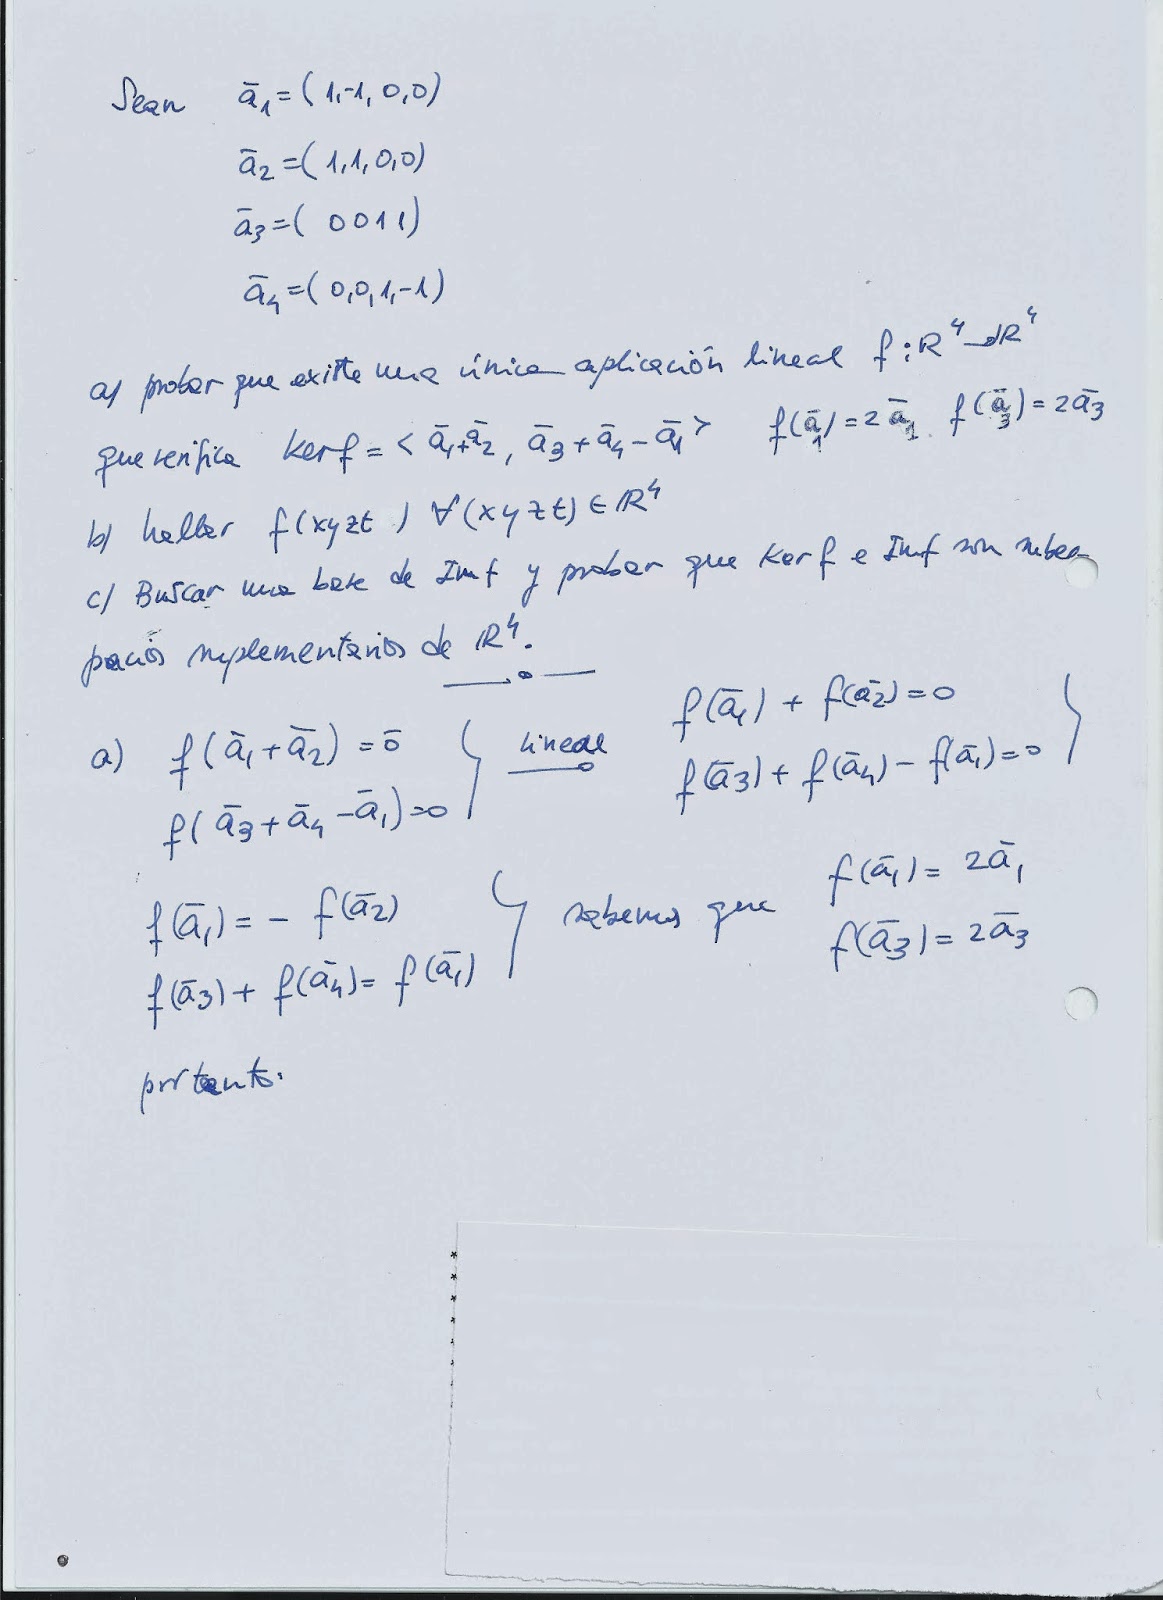 Sean ā₁=(1,-1,0,0)
ā₂=(1,1,0,0)
ā₃=( 0 0 1 1)
ā₄=(0,0,1,-1)
a) probar que existe una única aplicación lineal f:R⁴→R⁴
que verifica Kerf = <ā₁+ā₂, ā₃+ā₄-ā₁> f(ā₁)=2ā₁ f(ā₃)=2ā₃
b) hallar f(xyzt) ∀(xyzt)∈R⁴
c) Buscar una base de Imf y probar que Kerf e Imf son subes-
pacios suplementarios de R⁴.
a) f(ā₁+ā₂)=ō } lineal f(ā₁) + f(ā₂)=0 }
f(ā₃+ā₄-ā₁)=0 f(ā₃)+f(ā₄)-f(ā₁)=0
f(ā₁)= - f(ā₂) } sabemos que f(ā₁)= 2ā₁
f(ā₃)+ f(ā₄)= f(ā₁) f(ā₃)=2ā₃
por tanto:
*
*
*
*
*
*
*